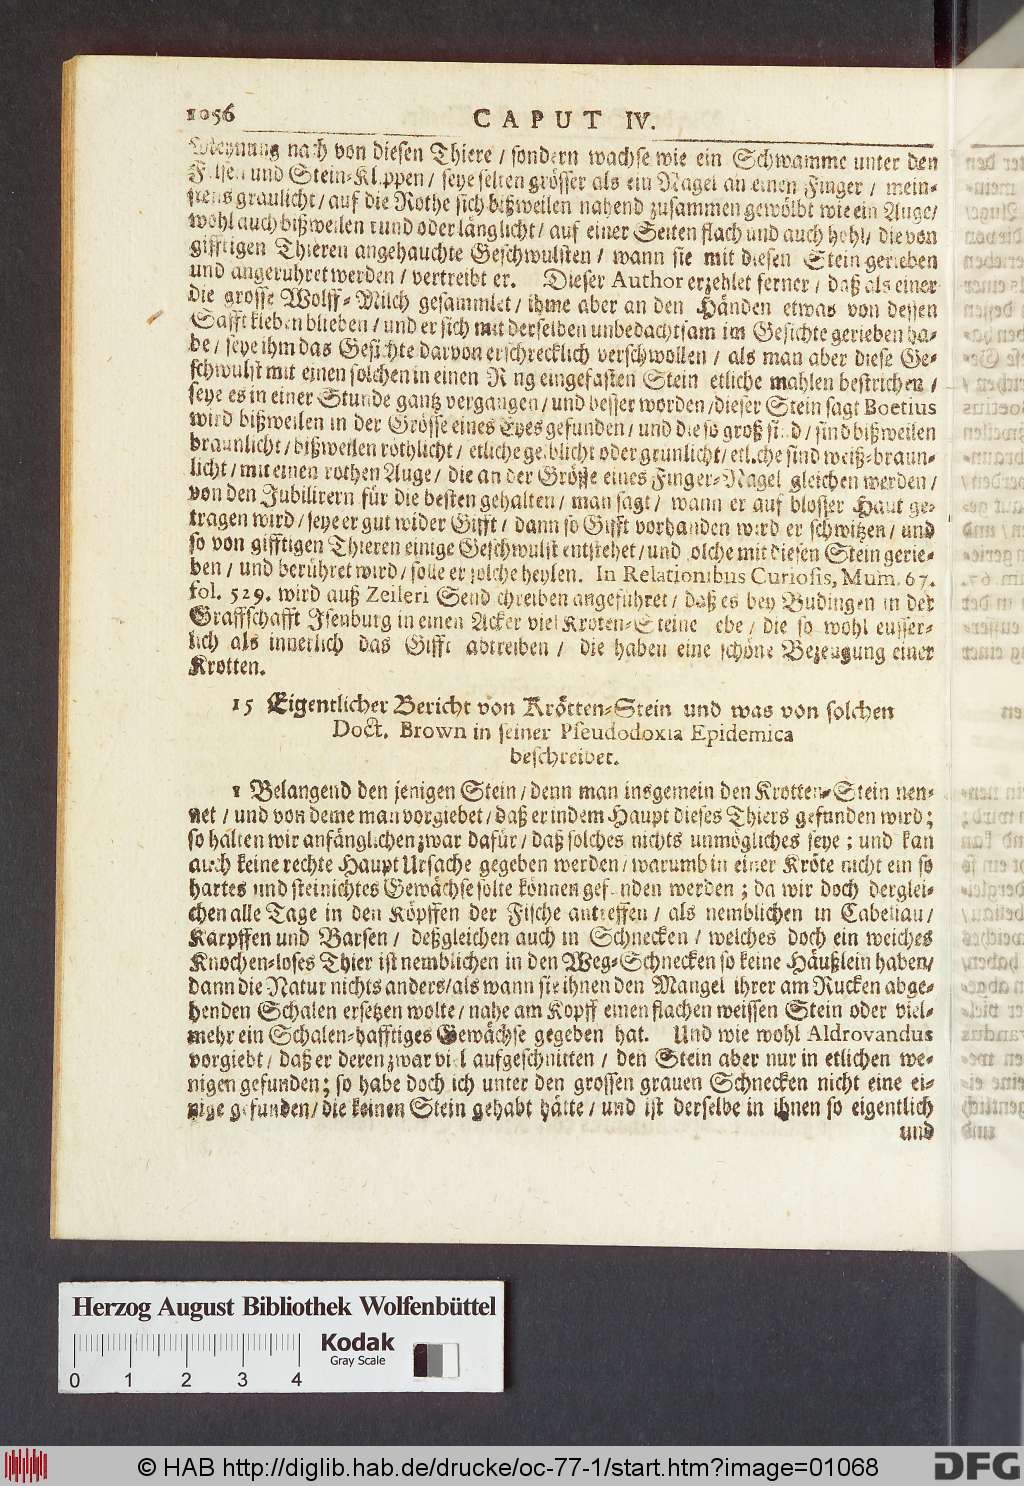 1056 CAPUT IV.
Meynung nach von diesen Thiere / sondern wachse wie ein Schwamme unter den
Felsen und Stein-Klippen / seye selten grösser als ein Nagel an einen Finger / mein-
stens graulicht / auf die Rothe sich bißweilen nahend zusammen gewölbt wie ein Auge /
wohl auch bißweilen rund oder länglicht / auf einer Seiten flach und auch hohl / die von
gifftigen Thieren angehauchte Geschwulsten / wann sie mit diesen Stein gerieben
und angerühret werden / vertreibt er. Dieser Author erzehlet ferner / daß als einer
die grosse Wolff-Milch gesammlet / ihme aber an den Händen etwas von dessen
Safft kleben blieben / und er sich mit derselben unbedachtsam im Gesichte gerieben ha-
be / seye ihm das Gesichte darvon erschrecklich verschwollen / als man aber diese Ge-
schwulst mit einen solchen in einen Ring eingefasten Stein etliche mahlen bestrichen /
seye es in einer Stunde gantz vergangen / und besser worden / dieser Stein sagt Boetius
wird bißweilen in der Grösse eines Eyes gefunden / und die so groß sind / sind bißweilen
braunlicht / bißweilen röthlicht / etliche gelblicht oder grunlicht / etliche sind weiß-braun-
licht / mit einen rothen Auge / die an der Größe eines Finger-Nagel gleichen werden /
von den Jubilirern für die besten gehalten / man sagt / wann er auf blosser Haut ge-
tragen wird / seye er gut wider Gifft / dann so Gifft vorhanden wird er schwitzen / und
so von gifftigen Thieren einige Geschwulst entstehet / und solche mit diesen Stein gerie-
ben / und berühret wird / solle er solche heylen. In Relationibus Curiosis, Mum. 67.
fol. 529. wird auß Zeileri Sendschreiben angeführet / daß es bey Budingen in der
Graffschafft Isenburg in einen Acker viel Kroten-Steine gebe / die so wohl eusser-
lich als innerlich das Gifft abtreiben / die haben eine schöne Bezeugung einer
Krotten.
15 Eigentlicher Bericht von Krötten-Stein und was von solchen
Doct. Brown in seiner Pseudodoxia Epidemica
beschreibet.
1 Belangend den jenigen Stein / denn man insgemein den Krotten-Stein nen-
net / und von deme man vorgiebet / daß er in dem Haupt dieses Thiers gefunden wird;
so halten wir anfänglichen zwar dafür / daß solches nichts unmögliches seye; und kan
auch keine rechte Haupt Ursache gegeben werden / warumb in einer Kröte nicht ein so
hartes und steinichtes Gewächse solte können gefunden werden; da wir doch derglei-
chen alle Tage in den Köpffen der Fische antreffen / als nemblichen in Cabeliau /
Karpffen und Barsen / deßgleichen auch in Schnecken / welches doch ein weiches
Knochen-loses Thier ist nemblichen in den Weg-Schnecken so keine Häußlein haben /
dann die Natur nichts anders / als wann sie ihnen den Mangel ihrer am Rucken abge-
henden Schalen ersetzen wolte / nahe am Kopff einen flachen weissen Stein oder viel-
mehr ein Schalen-hafftiges Gewächse gegeben hat. Und wie wohl Aldrovandus
vorgiebt / daß er deren zwar viel aufgeschnitten / den Stein aber nur in etlichen we-
nigen gefunden; so habe doch ich unter den grossen grauen Schnecken nicht eine ei-
nige gefunden / die keinen Stein gehabt hätte / und ist derselbe in ihnen so eigentlich
und
Herzog August Bibliothek Wolfenbüttel
Kodak
Gray Scale
0 1 2 3 4
© HAB http://diglib.hab.de/drucke/oc-77-1/start.htm?image=01068
DFG